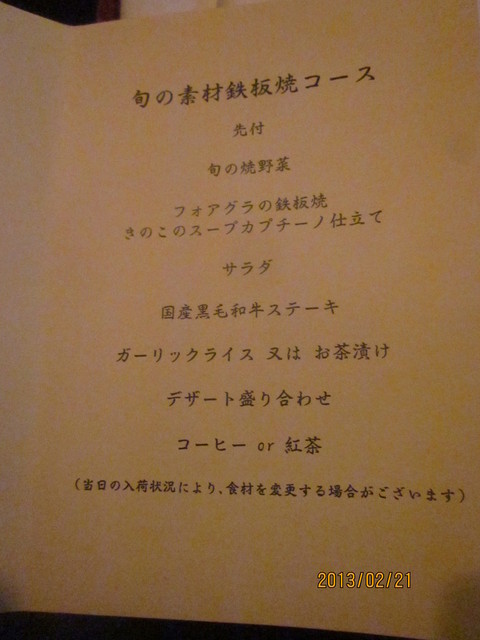 旬の素材鉄板焼コース
先付
旬の焼野菜
フォアグラの鉄板焼
きのこのスープカプチーノ仕立て
サラダ
国産黒毛和牛ステーキ
ガーリックライス 又は お茶漬け
デザート盛り合わせ
コーヒー or 紅茶
（当日の入荷状況により、食材を変更する場合がございます）
2013/02/21